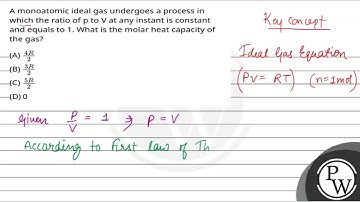 A monoatomic ideal gas undergoes a process in
which the ratio of p to V at any instant is constant
and equals to 1. What is the molar heat capacity of
the gas?
(A) 4R/2
(B) 3R/2
(C) 5R/2
(D) 0
Key concept
Ideal Gas Equation
(PV = RT) (n=1mol)
Given P/V = 1 ⇒ P = V
According to first law of Th
PW